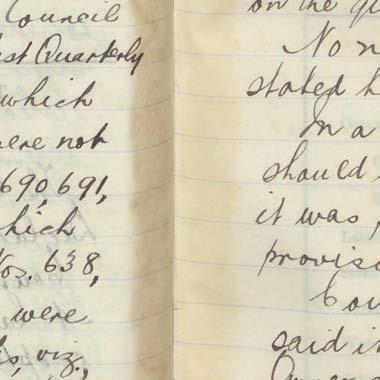 Council
Quarterly
which
were not
690, 691,
which
Nos. 638,
were
viz.,
on the
No
stated
In a
should
it was
said